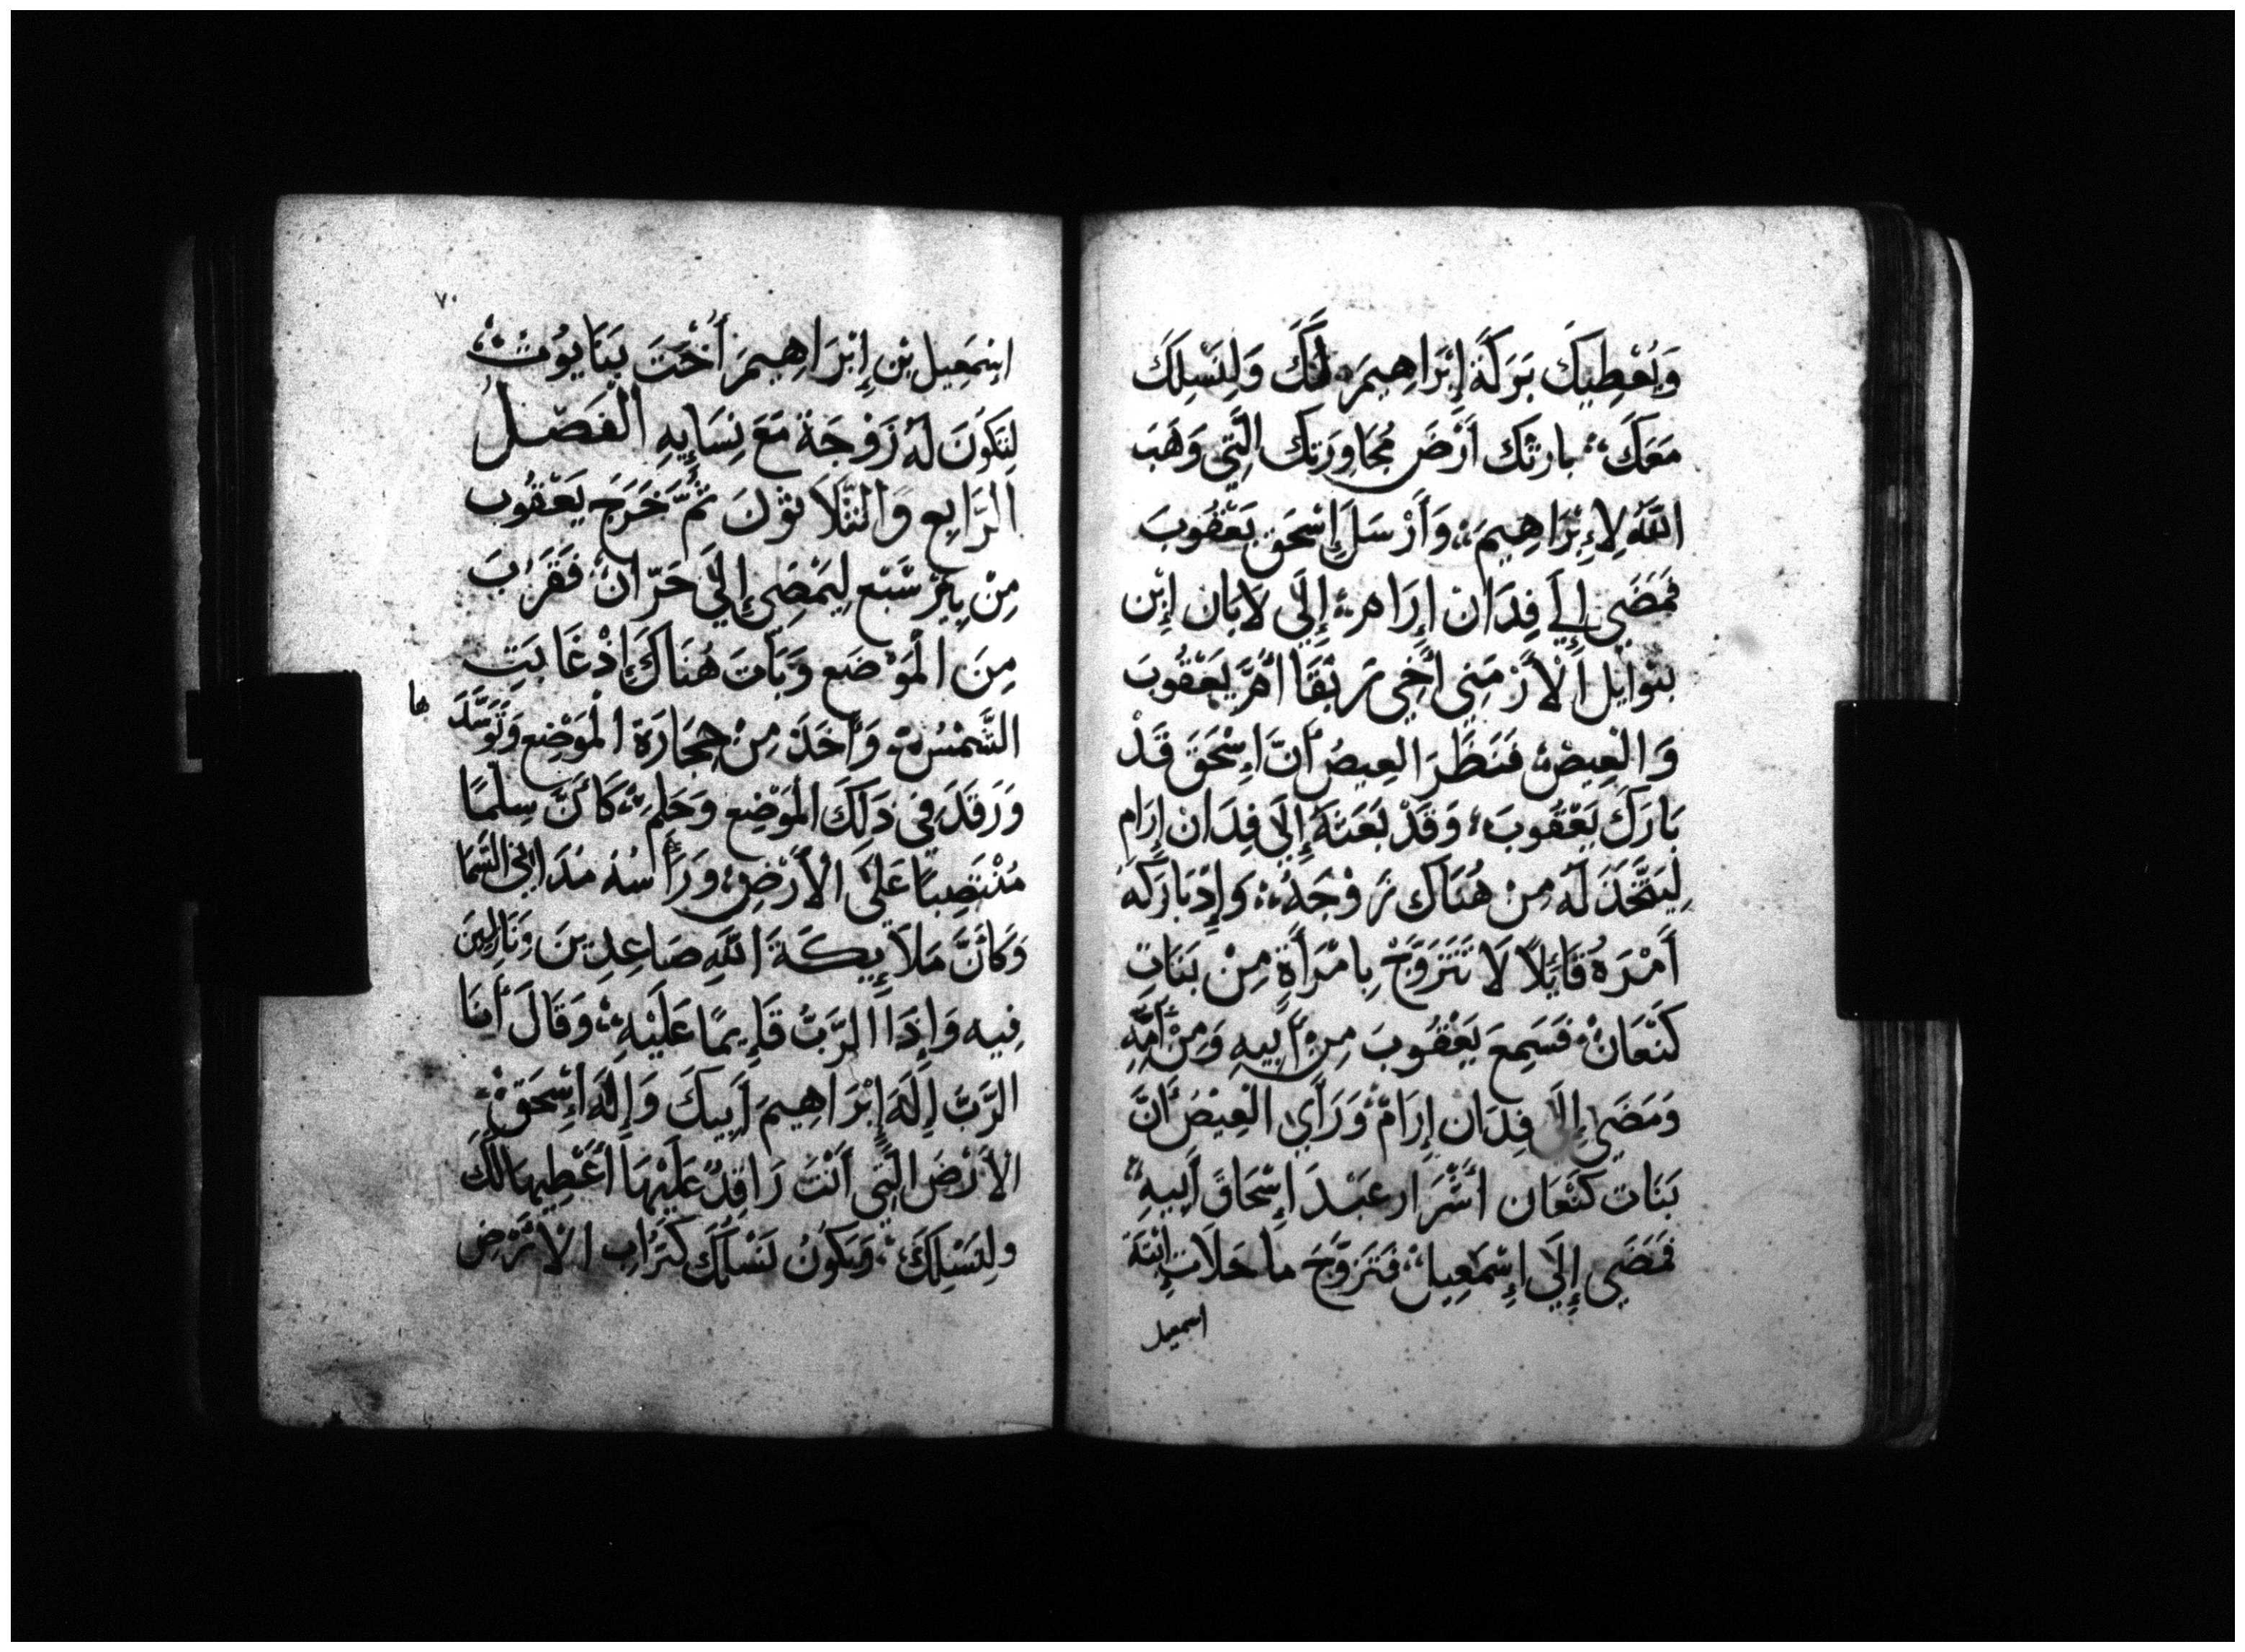 وَيُعْطِيكَ بَرَكَةَ إِبْرَاهِيمَ لَكَ وَلِنَسْلِكَ
مَعَكَ بارثك أَرْضَ مُجَاوِرَتِك الَّتِي وَهَبَ
اللَّهُ لِإِبْرَاهِيمَ وَأَرْسَلَ إِسْحَق يَعْقُوبَ
فَمَضَي إِلَي فِدَان إِرَامر إِلَي لَابان إِبْن
بتوَايل الْأَرْمَنِي أَخِي رَبْقَا أُمّ يَعْقُوبَ
وَالْعِيصْ فَنَظَرَ العِيصُ أَنَّ اِسْحَقَ قَدْ
بَارَكَ يَعْقُوبَ وَقَدْ بَعَثَهُ إِلَي فِدَان إِرَام
لِيَتَّخَذَ لَهُ مِنْ هُنَاك زَوْجَةً وَإِذْ بَارَكَهُ
أَمْرَهُ قَايِلًا لَا تَتَزَوَّجْ بِامْرَأَةٍ مِنْ بَنَاتِ
كَنْعَانْ فَسَمِعَ يَعْقُوبَ مِن أَبِيهِ وَمِنْ أُمِّهِ
وَمَضَي إِلَي فِدَان إِرَامْ وَرَأَي الْعِيْصُ أَنَّ
بَنَات كَنْعَان أَشْرَار عَبْدَ إِسْحَاقَ أَبِيهِ
فَمَضَي إِلَي إِسْمَعِيل فَتَزَوَّجَ ماحَلَات إِبْنَةَ
اسمعيل
٧٠
اسْمَعِيل بْن إِبْرَاهِيمَ أُخْتَ بِنَايوُتْ
لِتَكُونَ لَهُ زَوْجَة مَعَ نِسَايِهِ الْفَصْلُ
الرَّابِع وَالثَّلَاثوْنَ ثُمَّ خَرَجَ يَعْقُوب
مِنْ بِيْرْ سَبْع لِيَمْضَي إِلَي حَرَّانْ فَقَرُبَ
مِنَ الْمَوْضَع وَبَاتَ هُنَاكَ إِذْ غَابَتِ
الشَّمْسُ وَأَخَذَ مِنْ حِجَارَة الْمَوْضِع وَتَوَسَّدَ
ها
وَرَقَدَ فِي ذَلِكَ الْمَوْضِع وَحَلِمَ كَأَنَّ سِلمًا
مُنْتَصِبًا عَلَى الْأَرْضِ وَرَأْسُهُ مُدَانِي السَّمَا
وَكَأَنَّ مَلَايِكَةَ اللَّهِ صَاعِدِينَ وَنَازِلِينَ
فِيه وَإِذَا الرَّبُّ قَايِمًا عَلَيْهِ وَقَالَ أَنَا
الرَّبّ إِلَهَ إِبْرَاهِيمَ أَبِيكَ وَإِلَهَ إِسْحَقْ
الْأَرْضَ الَّتِي أَنْتَ رَاقِدٌ عَلَيْهَا أُعْطِيهَا لَكَ
ولِنَسْلِكَ وَيَكُونُ نَسْلُكَ كَتُرَاب الْأَرْضِ